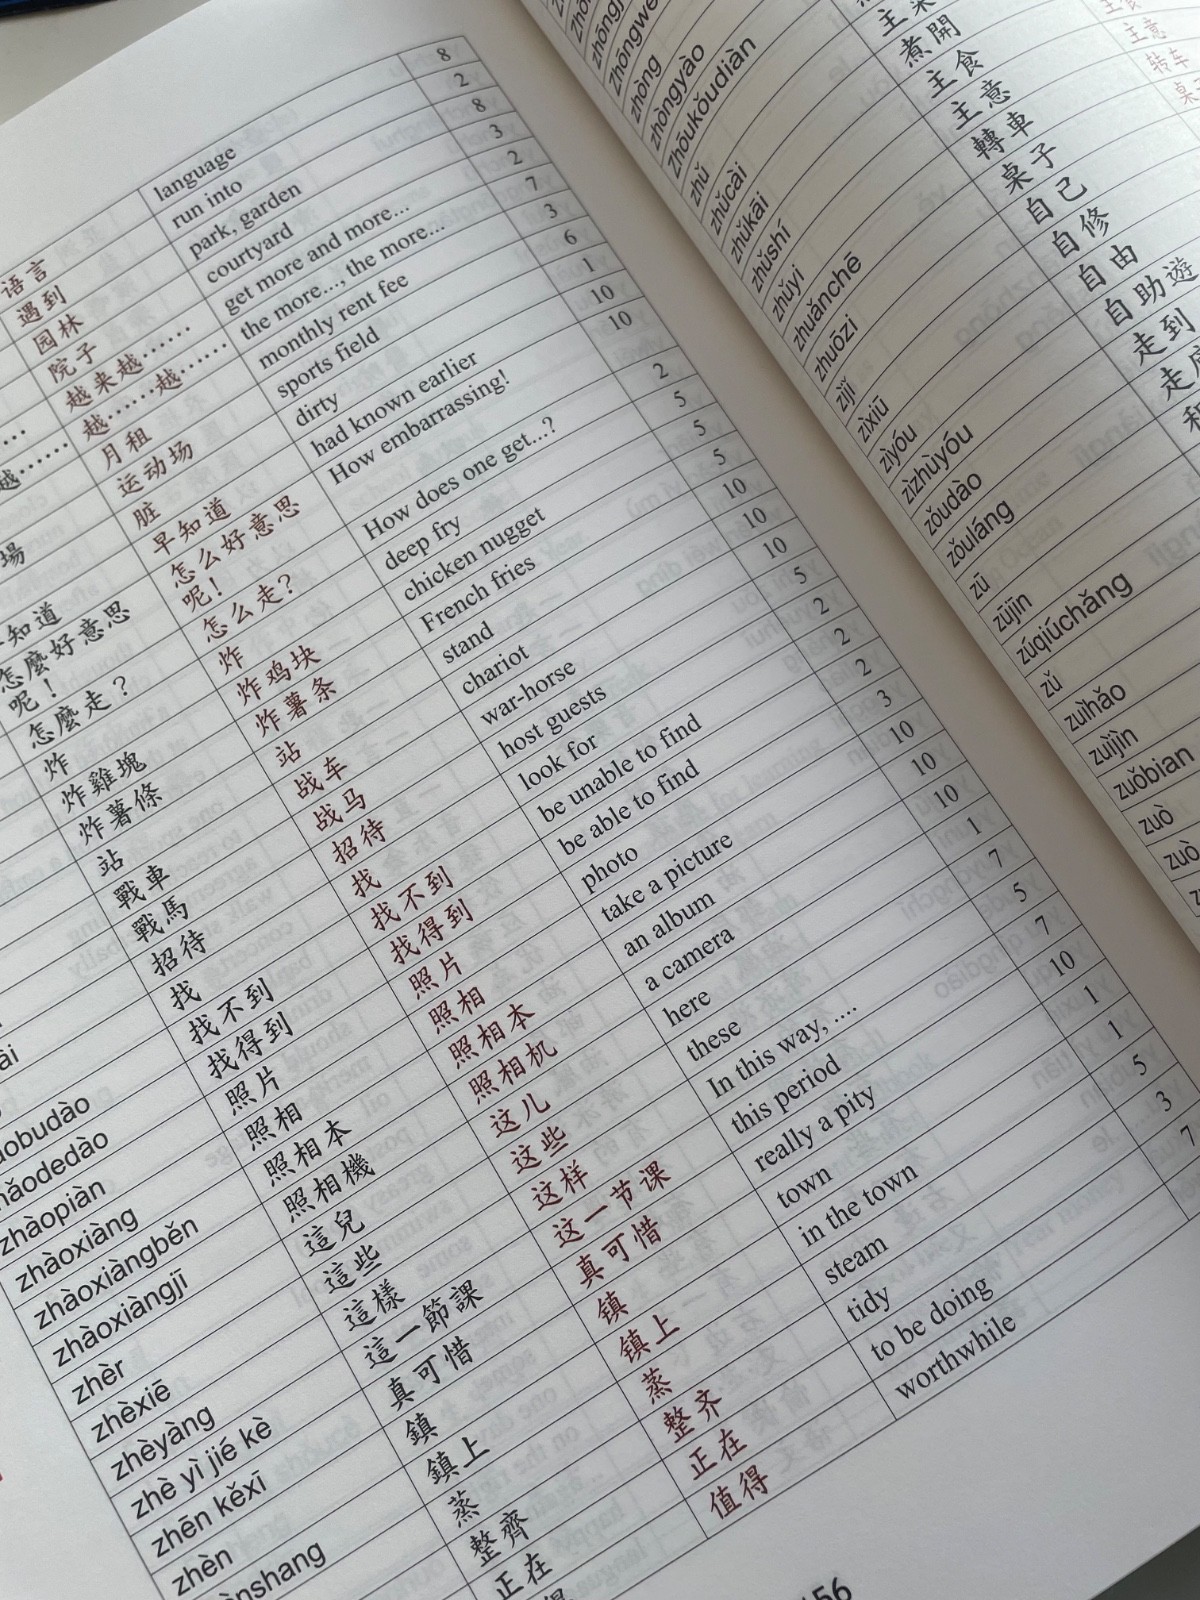 语言 language 8
遇到 run into 2
园林 park, garden 8
院子 courtyard 3
越来越…… get more and more... 2
越……越…… the more..., the more... 7
月租 monthly rent fee 3
場 运动场 sports field 6
脏 dirty 1
知道 早知道 had known earlier 10
怎麼好意思 怎么好意思 How embarrassing! 10
呢！ 呢！
怎麼走？ 怎么走？ How does one get...? 2
炸 炸 deep fry 5
炸雞塊 炸鸡块 chicken nugget 5
炸薯條 炸薯条 French fries 5
站 站 stand 10
戰車 战车 chariot 10
戰馬 战马 war-horse 10
招待 招待 host guests 5
找 找 look for 2
找不到 找不到 be unable to find 2
找得到 找得到 be able to find 2
zhàopiàn 照片 照片 photo 3
zhàoxiàng 照相 照相 take a picture 10
zhàoxiàngběn 照相本 照相本 an album 10
zhàoxiàngjī 照相機 照相机 a camera 10
zhèr 這兒 这儿 here 1
zhèxiē 這些 这些 these 7
zhèyàng 這樣 这样 In this way, .... 5
zhè yì jié kè 這一節課 这一节课 this period 7
zhēn kěxī 真可惜 真可惜 really a pity 10
zhèn 鎮 镇 town 1
鎮上 镇上 in the town 1
蒸 蒸 steam 5
整齊 整齐 tidy 3
正在 正在 to be doing 7
值得 worthwhile
zhòng
zhòngyào
Zhōukǒudiàn
zhǔ
zhǔcài
zhǔkāi 煮開
zhǔshí 主食
zhǔyi 主意 主意
zhuǎnchē 轉車 转车
zhuōzi 桌子
zìjǐ 自己
zìxiū 自修
zìyóu 自由
zìzhùyóu 自助遊
zǒudào 走到
zǒuláng
zū
zūjīn
zúqiúchǎng
zǔ
zuìhǎo
zuìjìn
zuǒbian
zuò
zuò